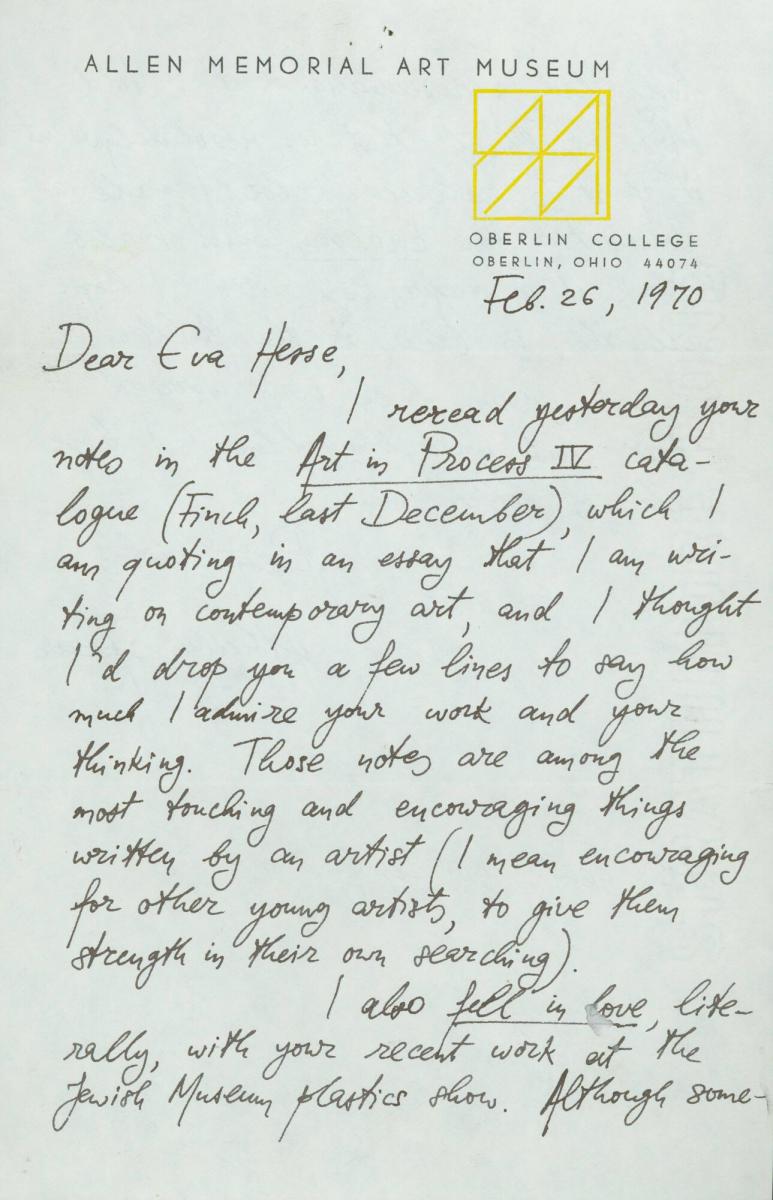 ALLEN MEMORIAL ART MUSEUM
OBERLIN COLLEGE
OBERLIN, OHIO 44074
Feb. 26, 1970
Dear Eva Hesse,
I reread yesterday your
notes in the Art in Process IV cata-
logue (Finch, last December), which I
am quoting in an essay that I am wri-
ting on contemporary art, and I thought
I'd drop you a few lines to say how
much I admire your work and your
thinking. Those notes are among the
most touching and encouraging things
written by an artist (I mean encouraging
for other young artists, to give them
strength in their own searching).
I also fell in love, lite-
rally, with your recent work at the
Jewish Museum plastics show. Although some-